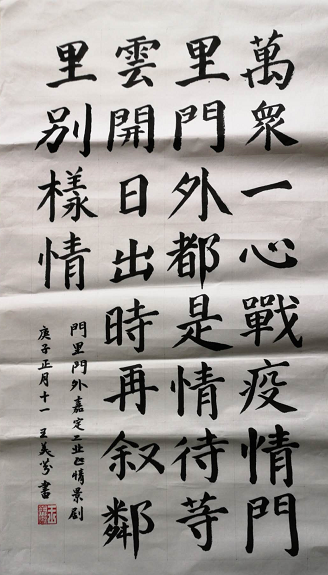 萬衆一心戰疫情門
里門外都是情待等
雲開日出時再叙鄰
里別樣情
門里門外嘉定工业区情景剧
庚子正月十一 王美芬書